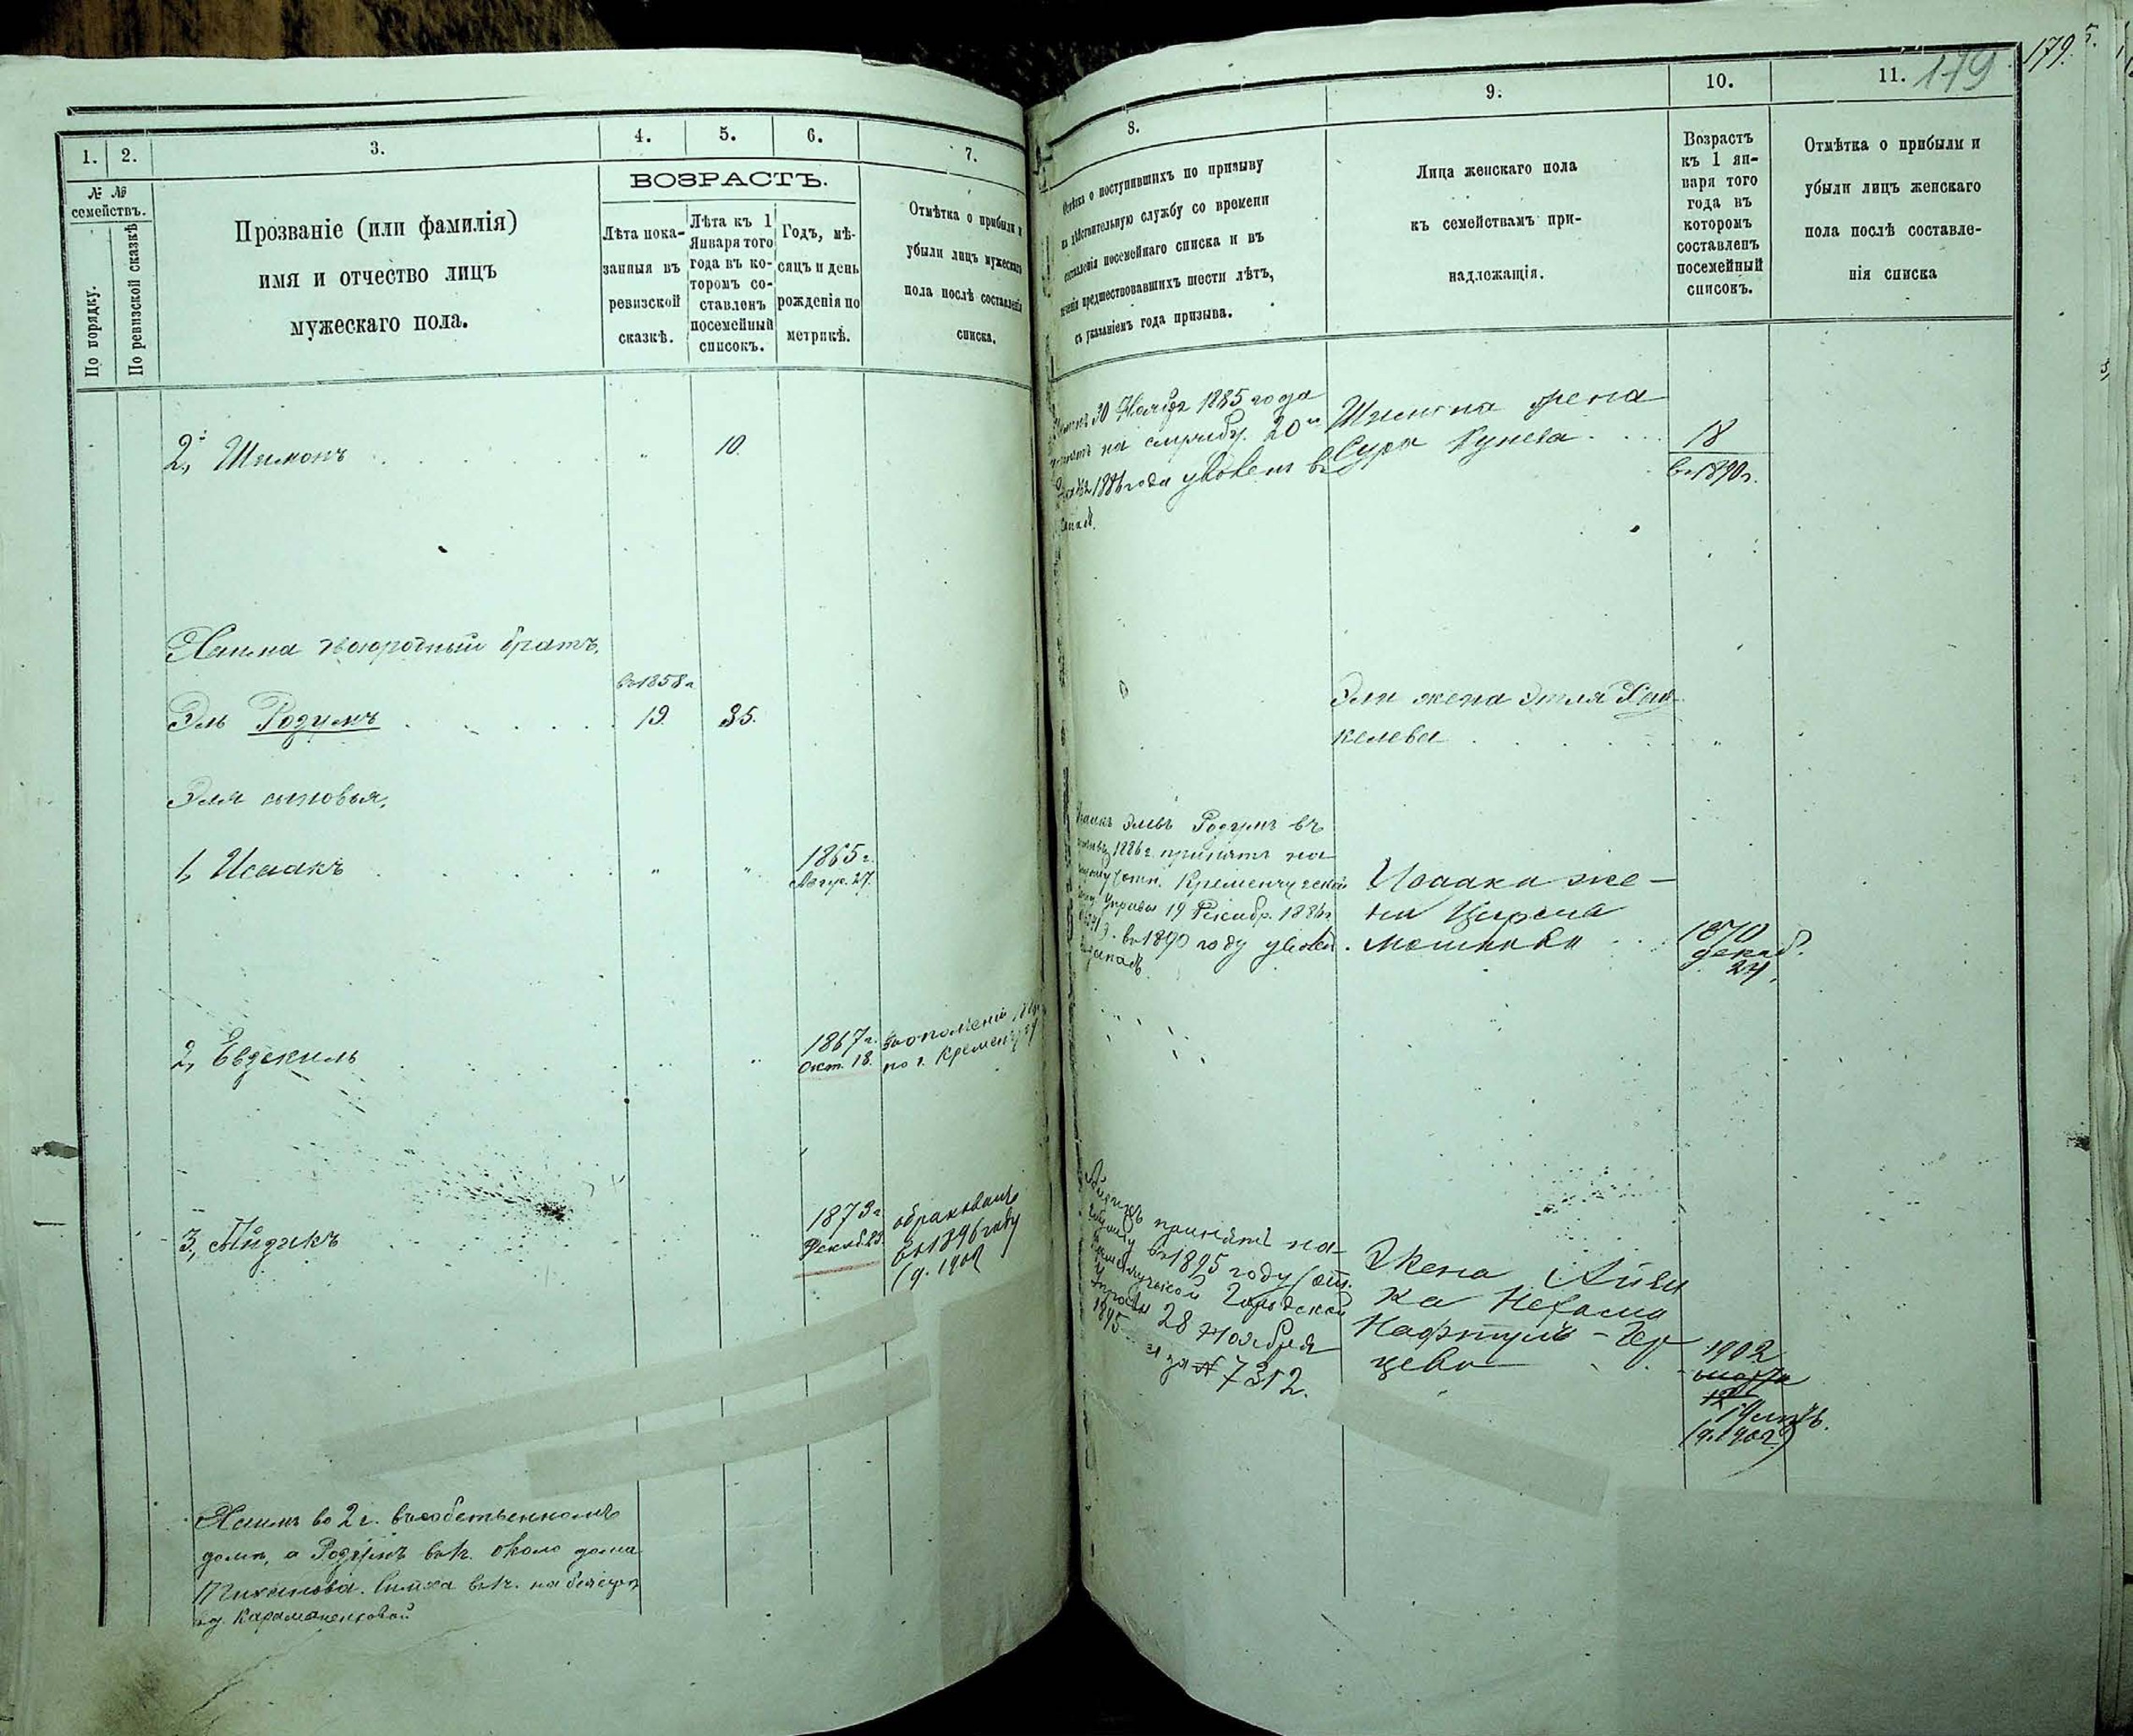 1.
2.
3.
4.
5.
6.
7.
№ №
семействъ.
По порядку.
По ревизской сказкѣ
Прозваніе (или фамилія)
имя и отчество лицъ
мужескаго пола.
ВОЗРАСТЪ.
Лѣта пока-
занныя въ
ревизской
сказкѣ.
Лѣта къ 1
Января того
года въ ко-
торомъ со-
ставленъ
посемейный
списокъ.
Годъ, мѣ-
сяцъ и день
рожденія по
метрикѣ.
Отмѣтка о прибыли и
убыли лицъ мужескаго
пола послѣ составленія
списка.
2, Шимонъ
"
10.
Хаима двоюродный братъ.
въ 1858 г.
Эль Родзинъ
19.
35.
Эля сыновья.
1, Исаакъ
"
"
1865 г.
Авгус. 27.
2, Евзекиль
"
1867 г.
Окт. 18.
по г. Кременчугу
3, Айзикъ
"
1873 г.
Декаб. 23.
обракованъ
въ 1896 году
(д. 1902
Хаимъ во 2 г. въ собственномъ
домѣ, а Родзинъ въ г. около дома
Тиханова.
8.
9.
10.
11.
179
179.
о поступившихъ по призыву
дѣйствительную службу со времени
составленія посемейнаго списка и въ
предшествовавшихъ шести лѣтъ,
съ указаніемъ года призыва.
Лица женскаго пола
къ семействамъ при-
надлежащія.
Возрастъ
къ 1 ян-
варя того
года въ
которомъ
составленъ
посемейный
списокъ.
Отмѣтка о прибыли и
убыли лицъ женскаго
пола послѣ составле-
нія списка
30 Ноября 1885 года
на службу. 20го
1886 года уволенъ въ
Шимона жена
Сура
18
въ 1890 г.
Эля жена Этля Хац-
келева
"
Исаакъ Элевъ Родзинъ въ
1886 г. принятъ на
службу (отн. Кременчугской
Управы 19 Декабр. 1886 г.
въ 1890 году уволен.
Исаака же-
на Цирля
Мошкова
1870
декаб.
24.
Айзикъ принятъ на
службу въ 1895 году (отн.
Кременчугской Городской
Управы 28 Ноября
1895 за № 7312.
Жена Айзи
ка Нехама
Нафтуль-Гер
цева
1902
марта
19 лѣтъ.
(д. 1902)